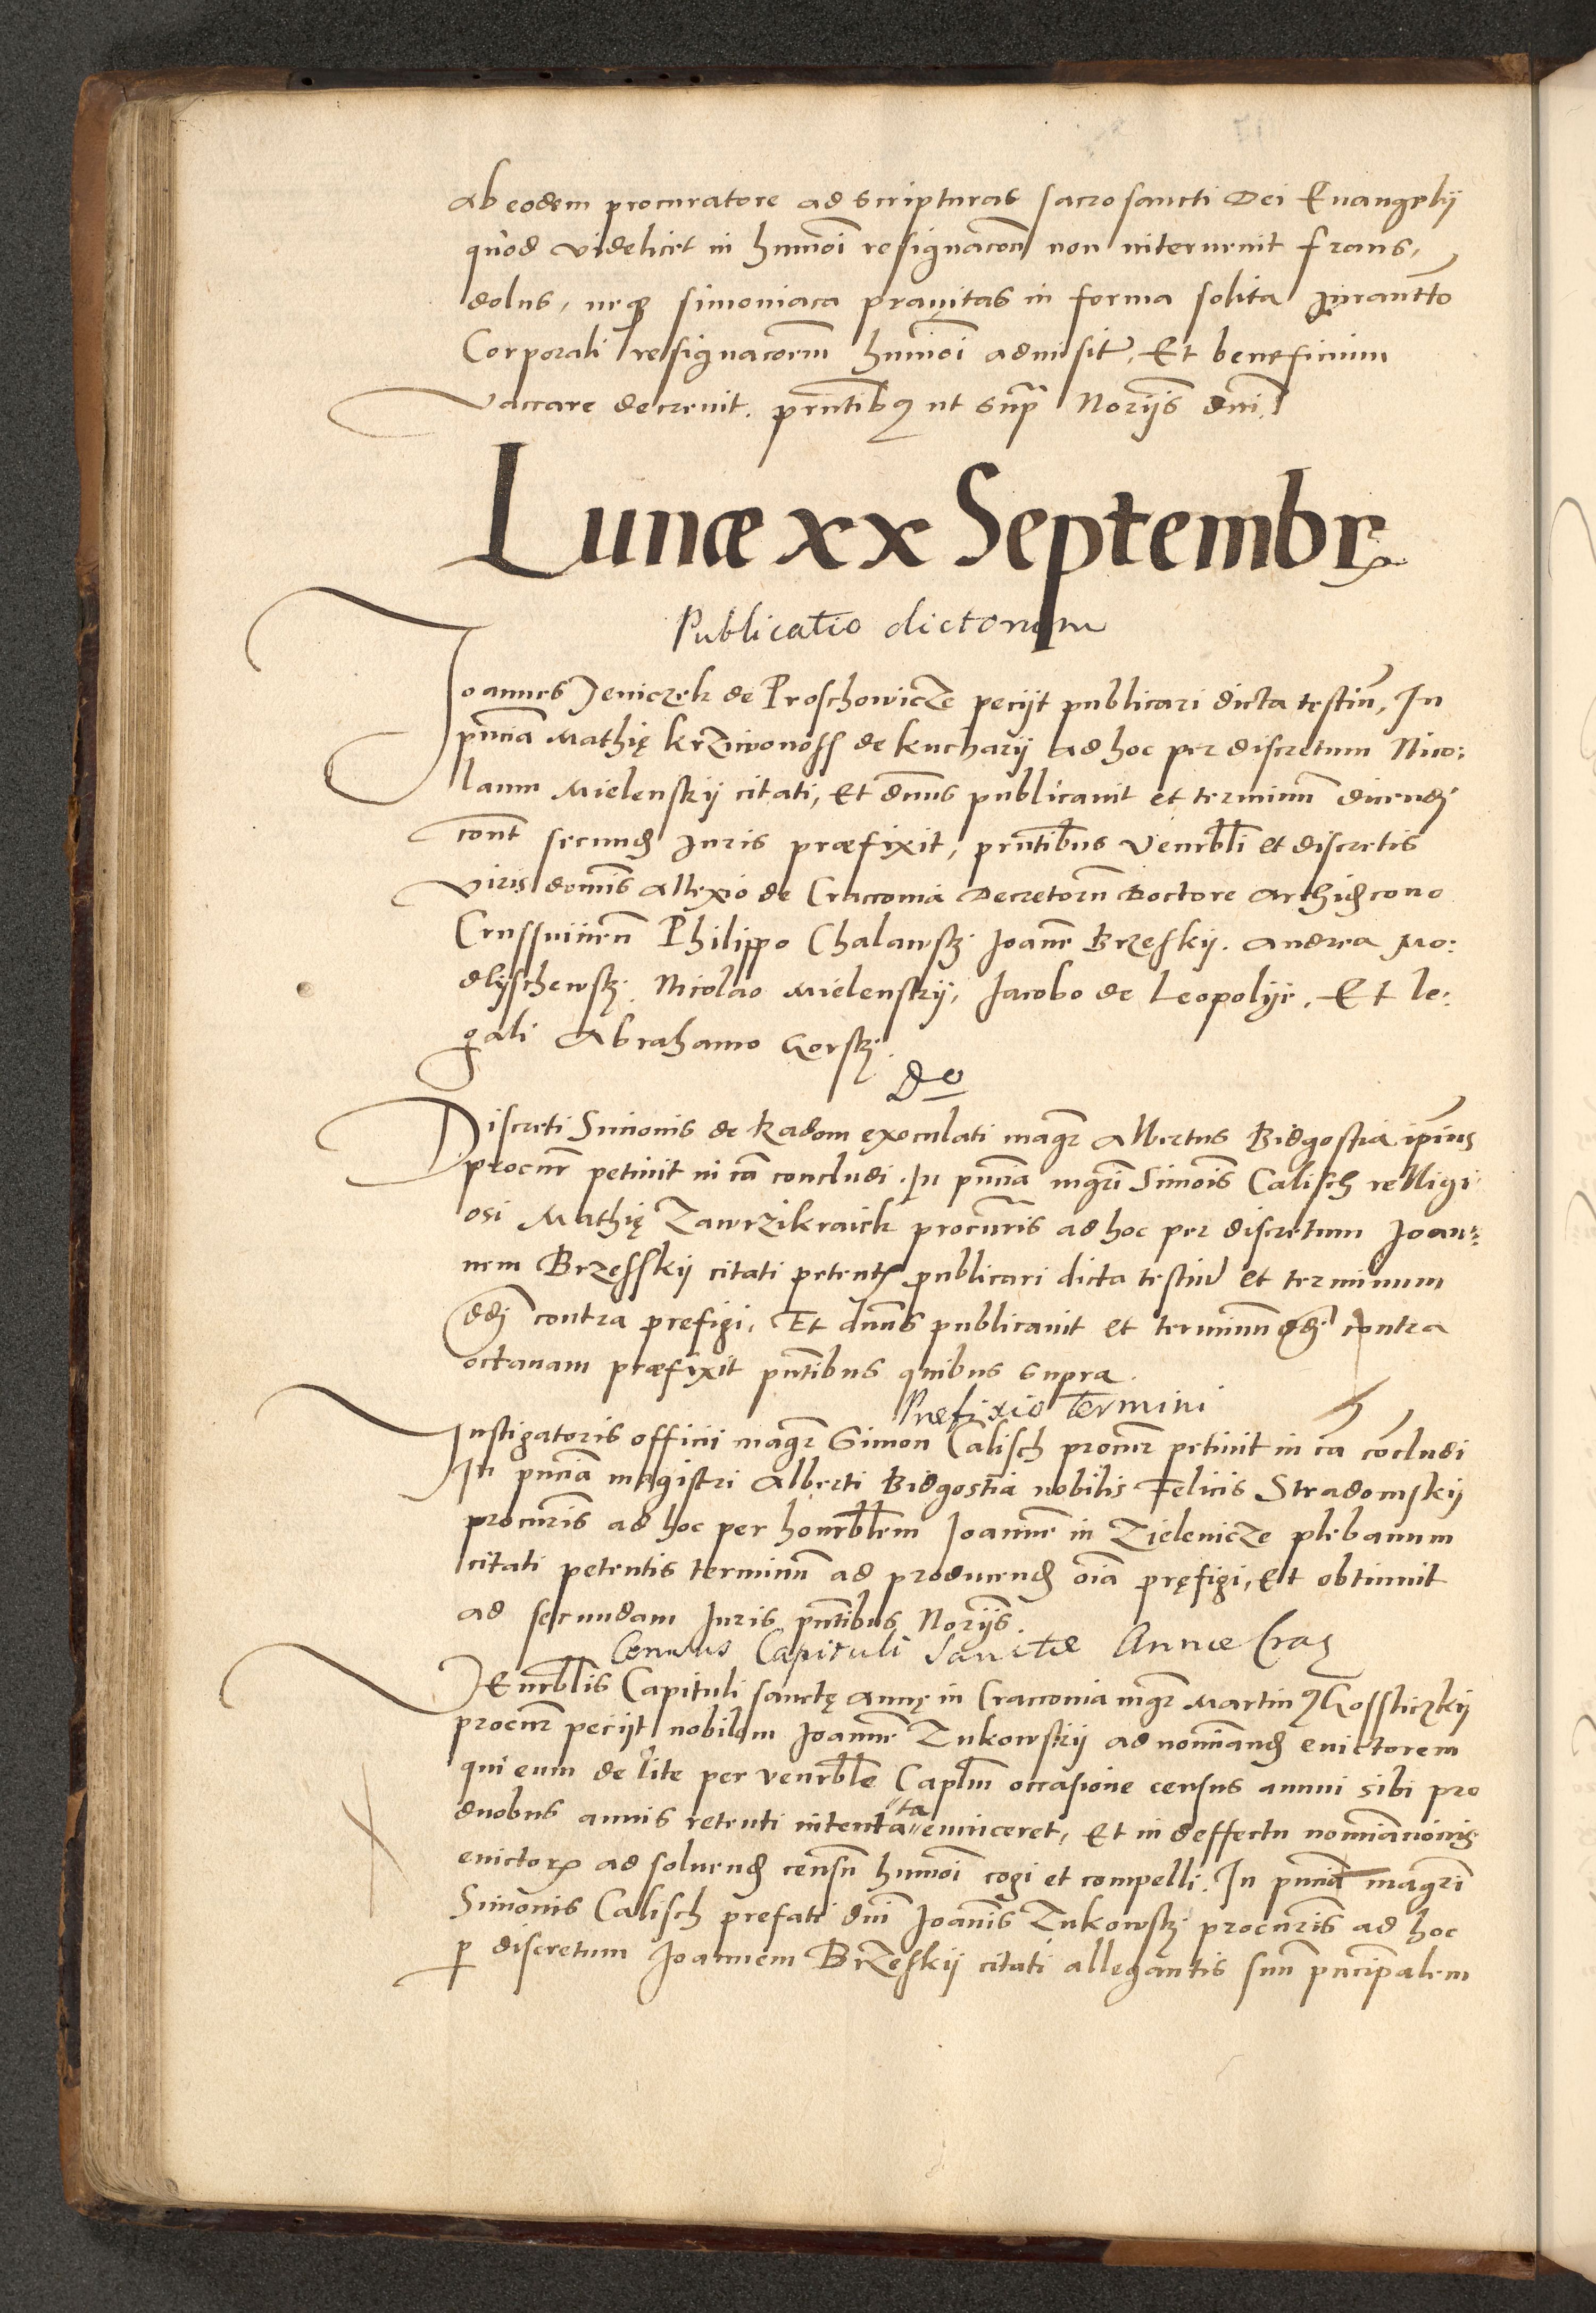 ab eodem procuratore ad scripturas sacrosancti Dei Euangelij
quod videlicet in hmōi resignacōn non interuenit fraus,
dolus, neqꝫ simoniaca prauitas in forma solita Jurantto
Corporali resignacōem hmōi admisit, Et beneficium
vaccare decreuit. pñtibꝰ ut supᵃ Norijs dni
Lunæ xx Septembr
Publicatio dictorum
Joannes Jeniczek de Proschowicze pecijt publicari dicta testiū, In
pñcia Mathię krziwonoss de kucharij ad hoc per discretum Nico:
laum Mielenskij citati, Et dnūs publicauit et terminū dicendi
cont secund Juris præfixit, pñtibus Venrbli et discretis
viris domīs Allexio de Craccouia Decretorū Doctore Archidcono
Crussuicien Philippo Chalawsk. Joanne Brzeskij. Andrea Mo:
dlischewsk. Nicolao Mielenskij, Jacobo de Leopolije. Et le:
gali Abrahamo Gorsk.
do
Discreti Simonis de Radom exoculati magr Albertus Bidgostia ipīus
procur petiuit in cā concludi. In pñcia mgri Simōis Calisch relligi
osi Mathię Zawrzikraick procurīs ad hoc per discretum Joan:
nem Brzesskij citati petent publicari dicta testiū et terminum
dđi contra prefigi. Et dnūs publicauit et terminū dđi contra
octauam præfixit pñtibus quibus supra.
Præfixio termini
Instigatoris officii magr Simon Calisch procur petiuit in cā cōcludi
In pñcia magistri Alberti Bidgostia nobilis Felicis Stradomskij
procurīs ad hoc per honrblem Joanne in Zielenicze plebanum
citati petentis terminū ad producend oīa pręfigi, Et obtinuit
ad secundam Juris pñtibus Norijs.
Census Capituli Sanctæ Annæ Crac
Venrblis Capituli sanctę Annę in Craccouia mgr Martinꝰ Gosslickij
procur pecijt nobilem Joanne Zukowskij ad nomīand euictorem
qui eum de lite per venrble Caplm occasione census annui sibi pro
duobus annis retenti intentata euinceret, Et in deffectu nomīacionis
euictor ad soluend censū hmōi cogi et compelli. In pñcia magri
Simonis Calisch prefati dni Joannīs Zukowsk. procurīs ad hoc
p discretum Joannem Brzeskij citati allegantis suū pncipalem